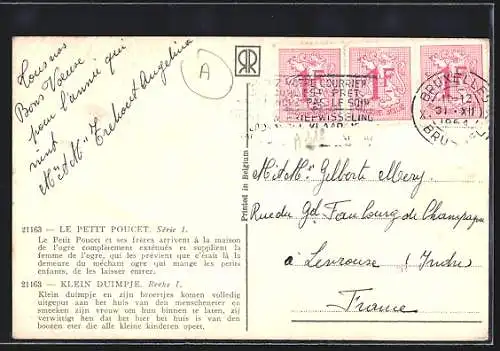 Tous nos
Bons Voeux
pour l'année qui
vient
Mr & Mme Trehout Angelina
A
RR
1F 1F 1F
COURRIER
PAS LE SOIR
BRUXELLES
11-12
31-XII
1964
Printed in Belgium
Mr & Mme Gilberte Mery
Rue du Gd Faubourg de Champagne
à Levroux (Indre)
France
21163 — LE PETIT POUCET. Série 1.
Le Petit Poucet et ses frères arrivent à la maison
de l'ogre complèrement exténués et supplient la
femme de l'ogre, qui les prévient que c'érais là la
demeure du mécham ogre qui mange les petits
enfants, de les laisser entrer.
21163 — KLEIN DUIMPJE. Reeks 1.
Klein duimpje en zijn broertjes komen volledig
uitgepus aan het huis van den menscheneter en
smeeken zijn vrouw om hun binnen te laten, zij
verwittigt hen dat het hier het huis is van den
boozen eter die alle kleine kinderen opeet.